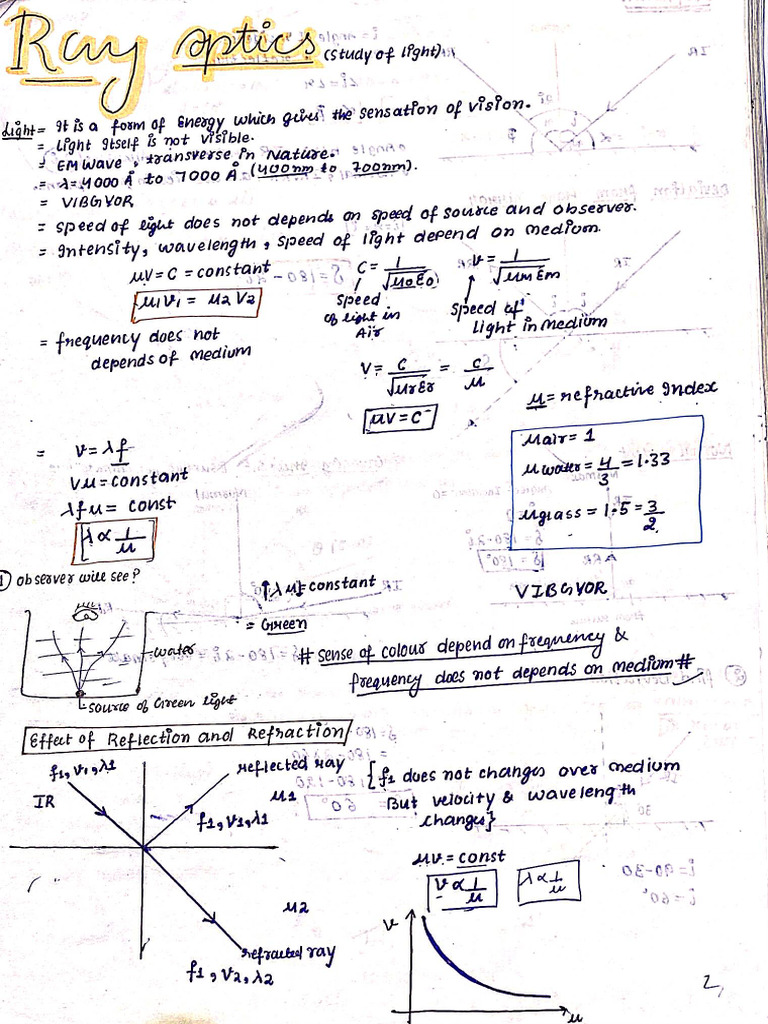 Ray optics (study of light)
Light = It is a form of Energy which gives the sensation of vision.
= Light Itself is not visible.
= EM wave, transverse in Nature.
= λ = 4000 Å to 7000 Å (400nm to 700nm).
= VIBGYOR
= speed of light does not depends on speed of source and observer.
= Intensity, wavelength, speed of light depend on medium.
μV = C = constant
C = 1/√μ0ε0
v = 1/√μmεm
μ1V1 = μ2V2
speed of light in Air
speed of light in medium
= frequency does not depends of medium
V = C/√μrεr = C/μ
μV = C
μ = refractive Index
μair = 1
μwater = 4/3 = 1.33
μglass = 1.5 = 3/2
= V = λf
Vμ = constant
λfμ = const
λ ∝ 1/μ
VIBGYOR
1 observer will see?
↑λμ↓ = constant
= Green
water
source of Green light
# sense of colour depend on frequency &
frequency does not depends on medium #
Effect of Reflection and Refraction
f1, V1, λ1
IR
reflected ray
μ1
f1, V1, λ1
{f1 does not changes over medium
But velocity & wavelength
changes}
μv = const
V ∝ 1/μ
λ ∝ 1/μ
μ2
refracted ray
f1, V2, λ2
V
μ
2